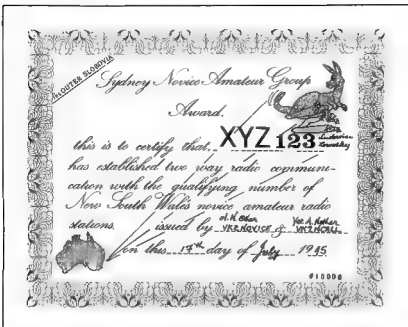 OUTER SLOBOVIA
Sydney Novice Amateur Group
Award.
this is to certify that XYZ 123
has established two way radio commune-
cation with the qualifying number of
New South Wales novice amateur radio
stations. issued by
VK2NOUSE &
on this 17th day of July 1985
#10000